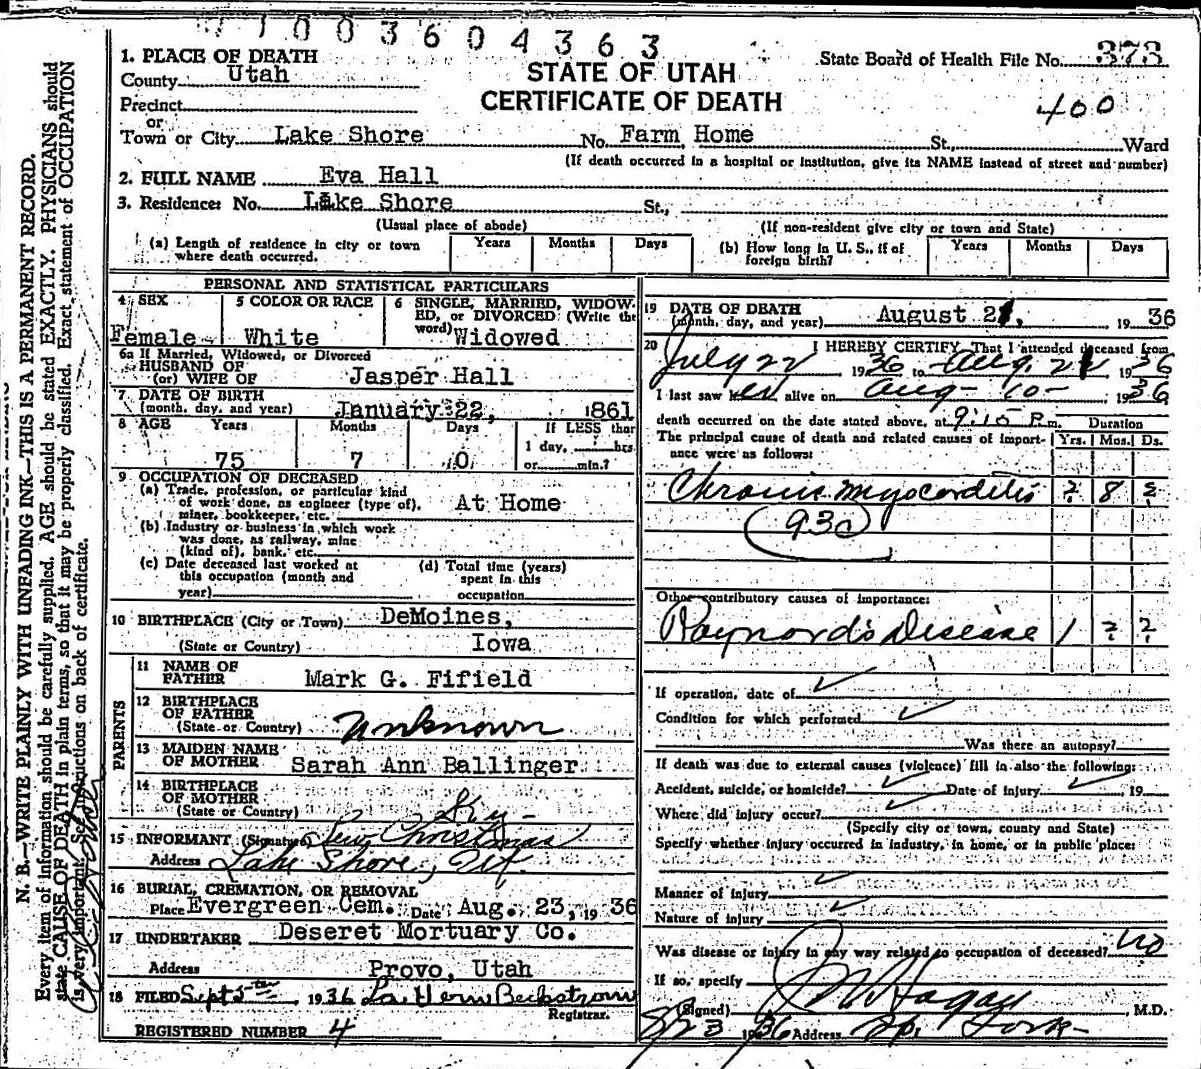 71003604363
1. PLACE OF DEATH
County Utah
Precinct
or
Town or City Lake Shore No. Farm Home St., Ward
STATE OF UTAH
CERTIFICATE OF DEATH
State Board of Health File No. 373
400
(If death occurred in a hospital or institution, give its NAME instead of street and number)
2. FULL NAME Eva Hall
3. Residence: No. Lake Shore St.,
(Usual place of abode) (If non-resident give city or town and State)
(a) Length of residence in city or town where death occurred. Years Months Days
(b) How long in U. S., if of foreign birth? Years Months Days
PERSONAL AND STATISTICAL PARTICULARS
4 SEX
Female
5 COLOR OR RACE
White
6 SINGLE, MARRIED, WIDOWED, or DIVORCED (Write the word)
Widowed
6a If Married, Widowed, or Divorced
HUSBAND OF
(or) WIFE OF Jasper Hall
7 DATE OF BIRTH
(month, day, and year) January 22, 1861
8 AGE Years Months Days If LESS than
1 day, hrs.
or min.?
75 7 0
9 OCCUPATION OF DECEASED
(a) Trade, profession, or particular kind
of work done, as engineer (type of),
miner, bookkeeper, etc. At Home
(b) Industry or business in which work
was done, as railway, mine
(kind of), bank, etc.
(c) Date deceased last worked at
this occupation (month and
year)
(d) Total time (years)
spent in this
occupation
10 BIRTHPLACE (City or Town) DeMoines,
(State or Country) Iowa
PARENTS
11 NAME OF
FATHER Mark G. Fifield
12 BIRTHPLACE
OF FATHER
(State or Country) Unknown
13 MAIDEN NAME
OF MOTHER Sarah Ann Ballinger
14 BIRTHPLACE
OF MOTHER
(State or Country) Ky.
15 INFORMANT (Signature) Lew Christmas
Address Lake Shore, Ut.
16 BURIAL, CREMATION, OR REMOVAL
Place Evergreen Cem. Date Aug. 23, 1936
17 UNDERTAKER Deseret Mortuary Co.
Address Provo, Utah
18 FILED Sept 5th, 1936 LaVern Beckstrom
Registrar.
REGISTERED NUMBER 4
19 DATE OF DEATH
(month, day, and year) August 21, 1936
20 I HEREBY CERTIFY, That I attended deceased from
July 22 1936 to Aug. 21 1936
I last saw her alive on Aug - 10 - 1936
death occurred on the date stated above, at 9:15 P.m. Duration
The principal cause of death and related causes of importance were as follows: Yrs. Mos. Ds.
Chronic myocarditis ? 8 ?
(93c)
Other contributory causes of importance:
Raynord's Disease 1 ? ?
If operation, date of
Condition for which performed
Was there an autopsy?
If death was due to external causes (violence) fill in also the following:
Accident, suicide, or homicide? Date of injury , 19
Where did injury occur?
(Specify city or town, county and State)
Specify whether injury occurred in industry, in home, or in public place:
Manner of injury
Nature of injury
Was disease or injury in any way related to occupation of deceased? no
If so, specify
(Signed) Hagan, M.D.
8/23 1936 Address Sp. Fork
N. B.—WRITE PLAINLY WITH UNFADING INK—THIS IS A PERMANENT RECORD.
Every item of information should be carefully supplied. AGE should be stated EXACTLY. PHYSICIANS should
state CAUSE OF DEATH in plain terms, so that it may be properly classified. Exact statement of OCCUPATION
is very important. See instructions on back of certificate.